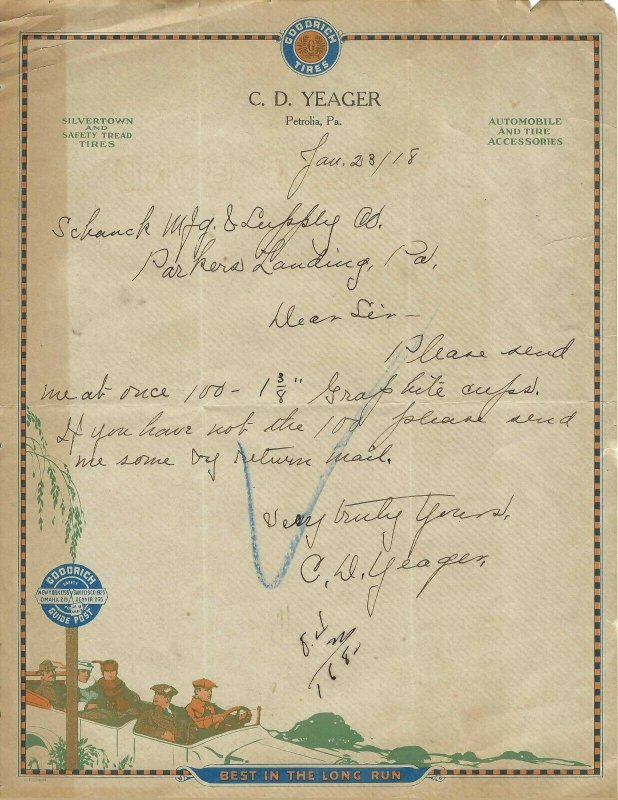 GOODRICH
TIRES
C. D. YEAGER
Petrolia, Pa.
SILVERTOWN
AND
SAFETY TREAD
TIRES
AUTOMOBILE
AND TIRE
ACCESSORIES
Jan. 23/18
Schanck Mfg. & Supply Co.
Parkers Landing, Pa.
Dear Sir -
Please send
me at once 100 - 1 3/8" Graphite cups.
If you have not the 100 please send
me some by return mail.
Very truly Yours,
C. D. Yeager.
GOODRICH
SAFETY
NEW YORK
OMAHA
GUIDE POST
BEST IN THE LONG RUN